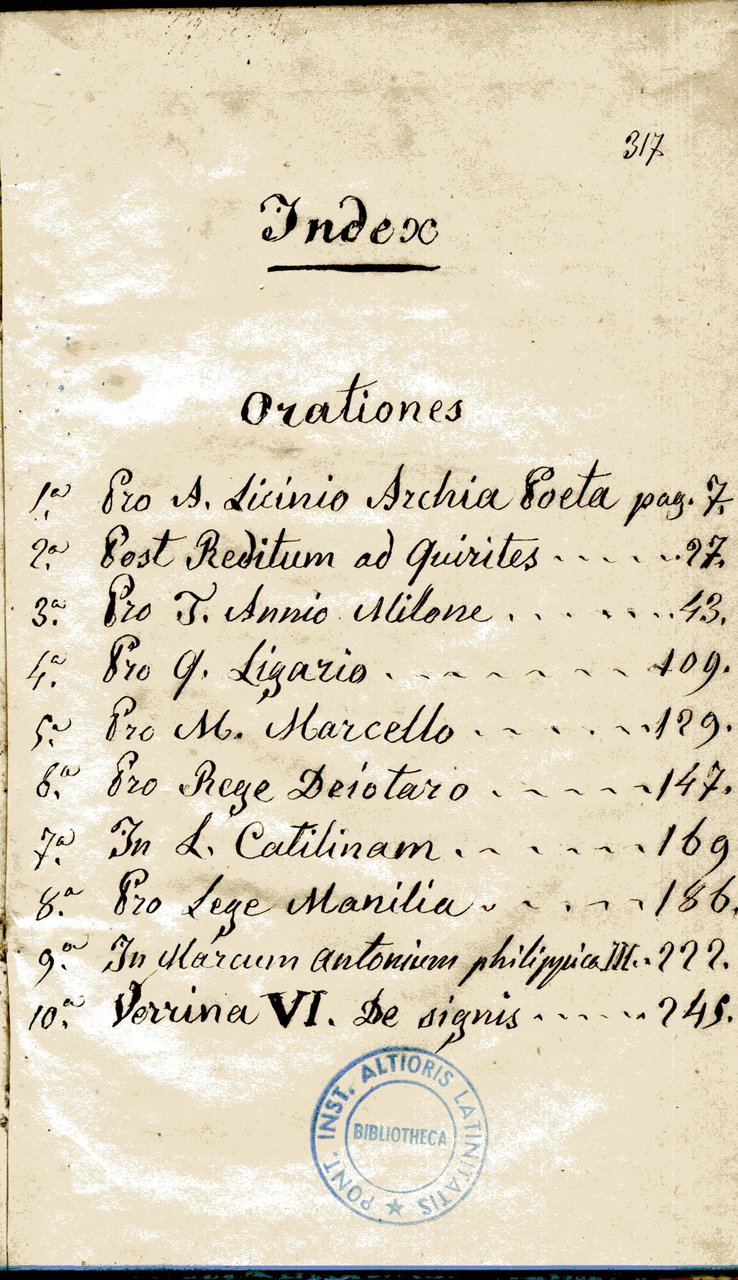 317
Index
Orationes
1.ª Pro A. Licinio Archia Poeta pag. 7.
2.ª Post Reditum ad Quirites - - - - - 27.
3.ª Pro T. Annio Milone . - - - - - 43.
4.ª Pro Q. Ligario . - - - - - - 109.
5.ª Pro M. Marcello - - - - - 129.
6.ª Pro Rege Deiotaro . - - - - 147.
7.ª In L. Catilinam . - - - - - 169
8.ª Pro Lege Manilia - - - - - 186.
9.ª In Marcum Antonium philippica III. - 222.
10.ª Verrina VI. De signis - - - - - 245.
PONT. INST. ALTIORIS LATINITATIS
BIBLIOTHECA